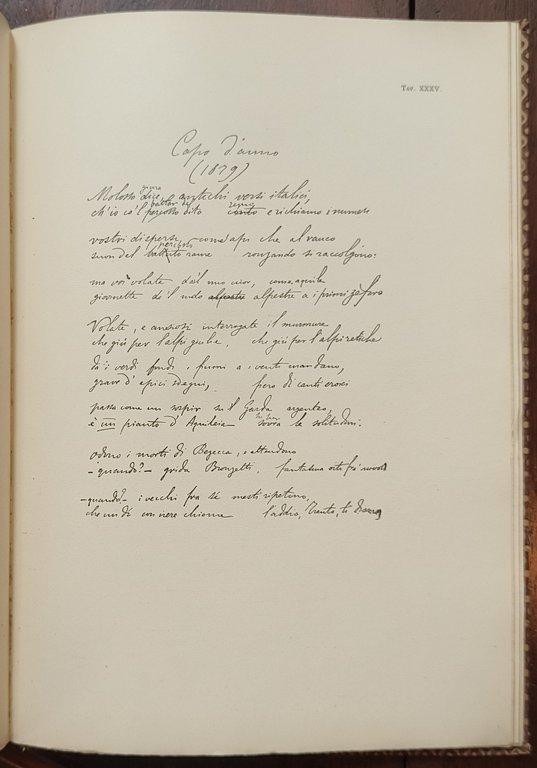 Tav. XXXV.
Capo d'anno
(1879)
Molosso dice, o antichi versi italici,
batter del
ch'io co'l percosso dito canto e richiamo i numeri
vostri dispersi, com'api che al rauco
percosso
suon del battuto rame ronzando si raccolgono:
ma voi volate da'l mio cuor, com'aquile
giovinette da 'l nido alpestre alpestre a i primi zefiri
Volate, e ansiosi interrogate il murmure
che giù per l'alpi giulie, che giù per l'alpi retiche
da i verdi fondi i fiumi a i venti mandano,
grave d'epici sdegni, fiero di canti eroici
passa come un sospir su'l Garda argenteo,
è un pianto d'Aquileia sovra le solitudini.
odono i morti di Bezecca, e attendono
– quando? – grida Bronzetti, fantasma erto fra i nuvoli
– quando? – i vecchi fra sè mesti ripetono,
che un dì con nere chiome l'addio, Trento, ti